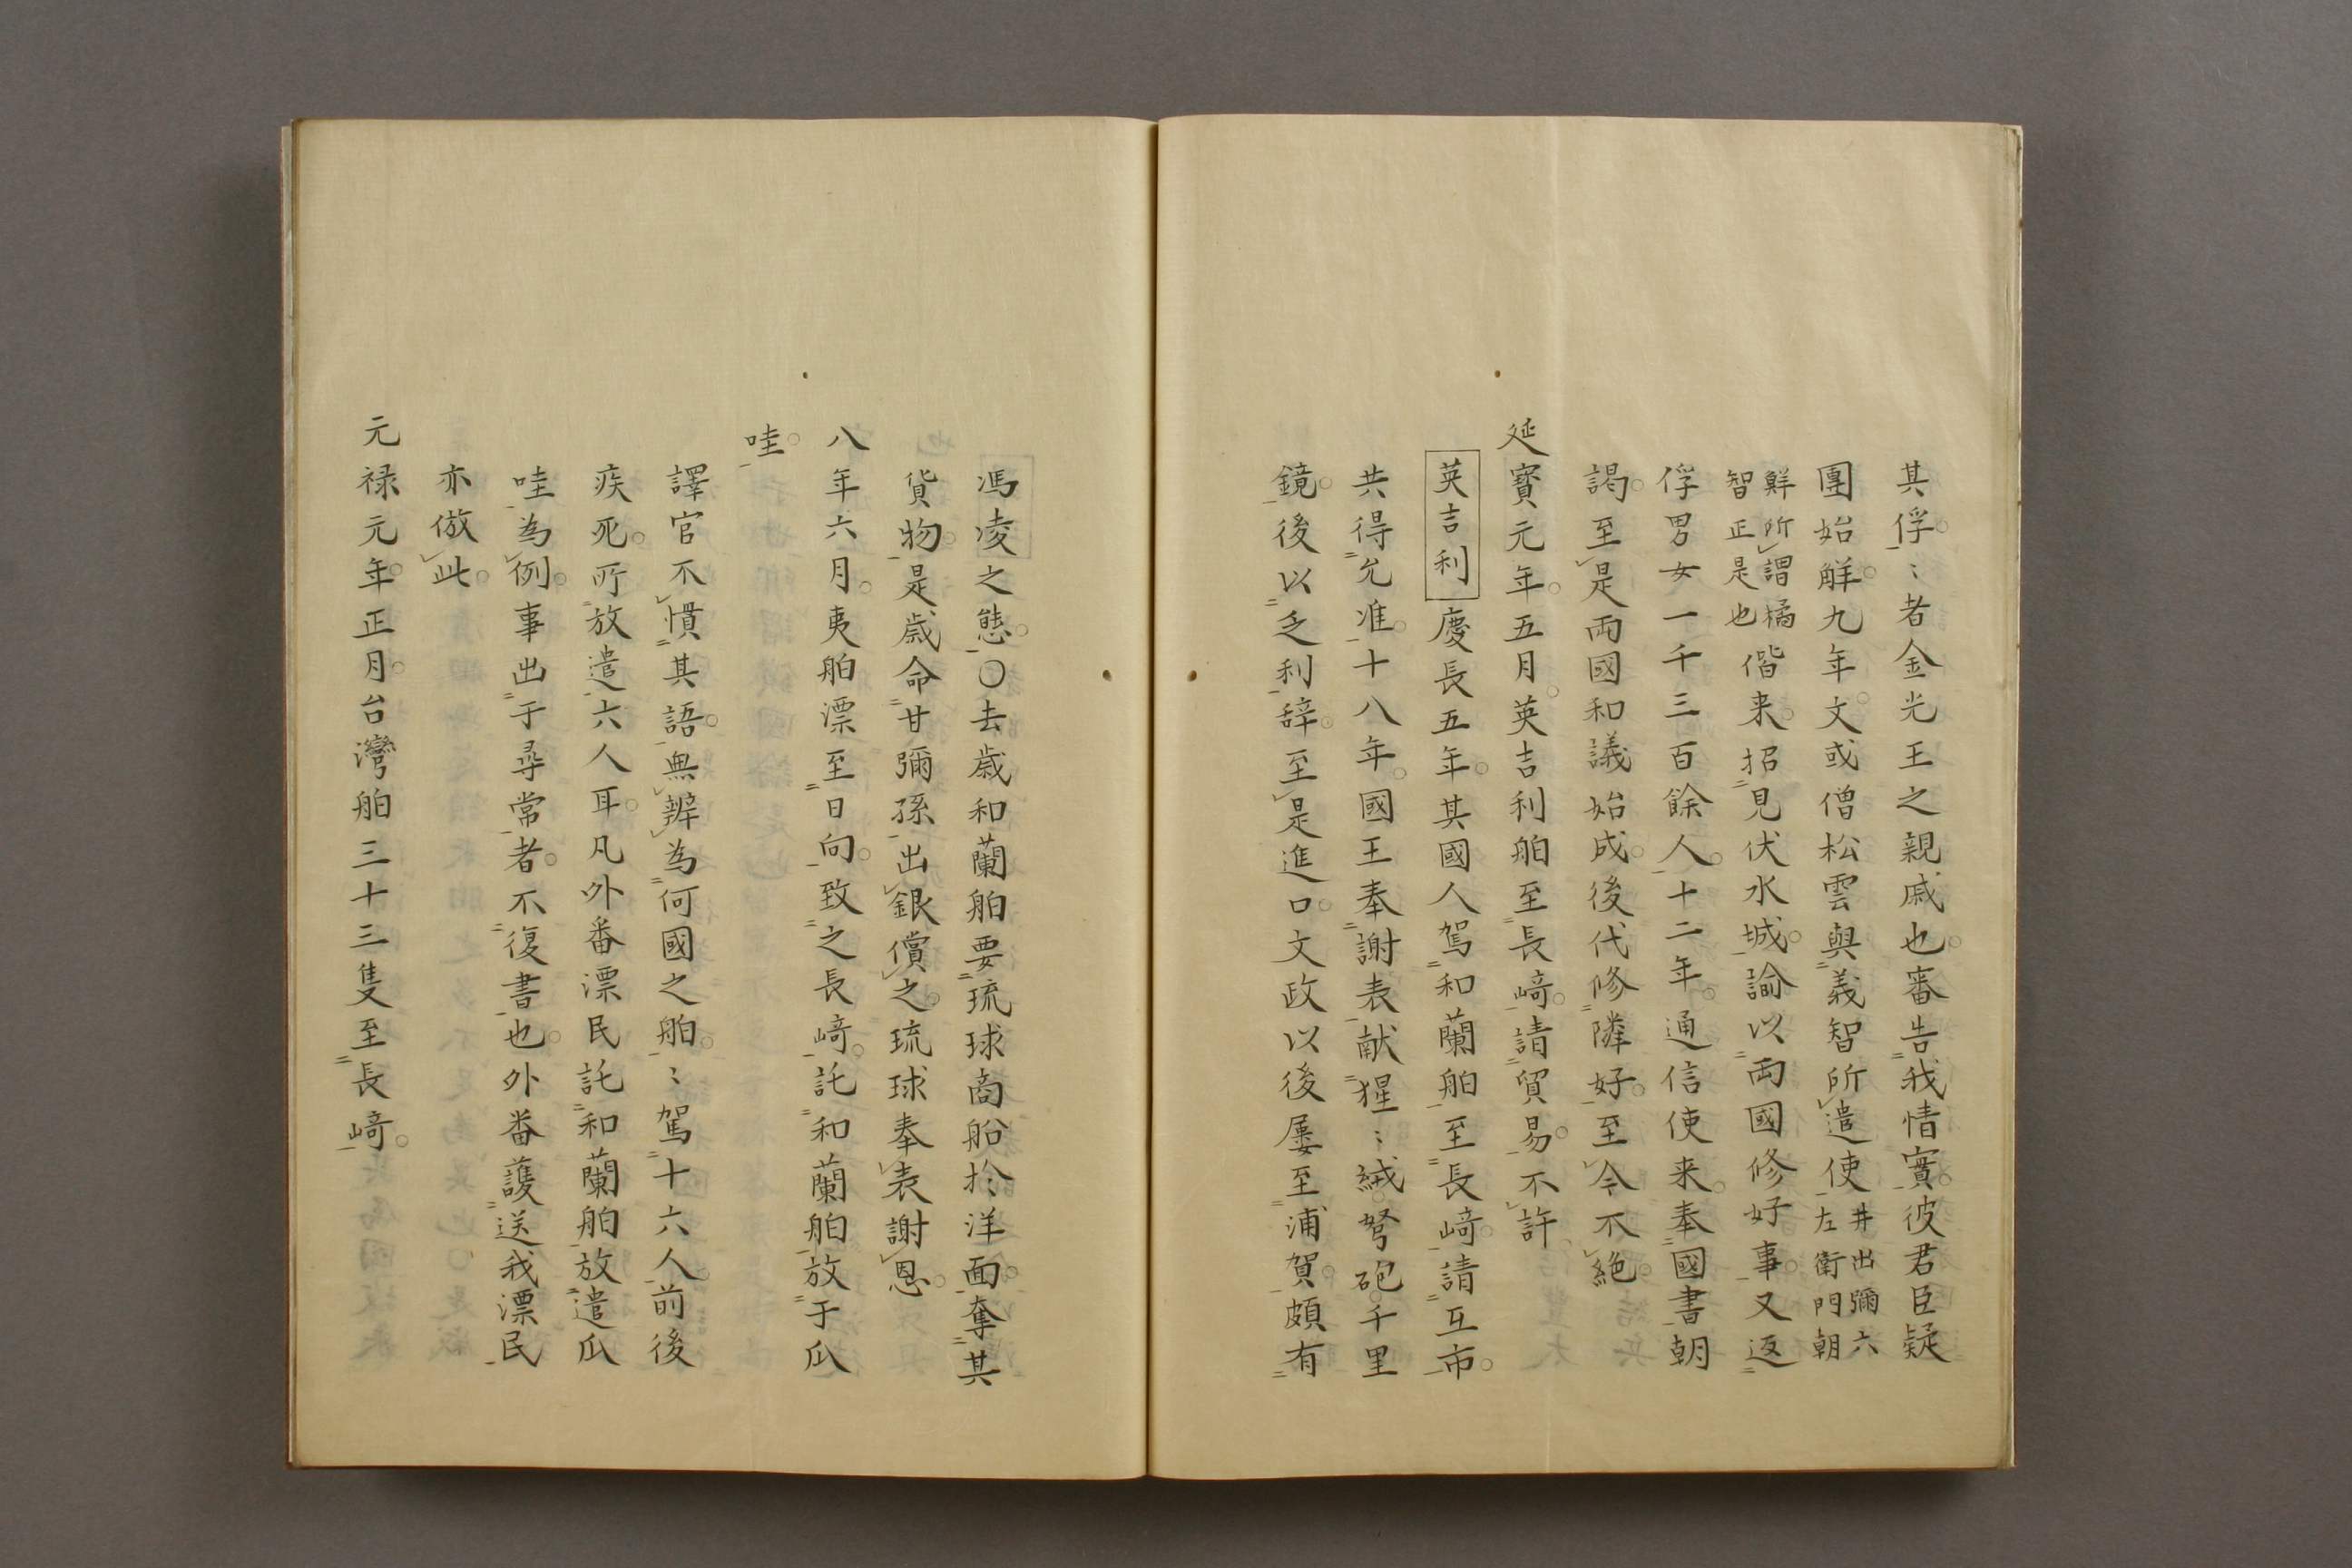 其俘〻者金光王之親戚也審告我情實彼君臣疑
團始解九年文或僧松雲與義智所遣使井出彌六左衛門朝
鮮所謂橘智正是也偕来招見伏水城諭以両國修好事又返
俘男女一千三百餘人十二年通信使来奉國書朝
謁至是両國和議始成後代修隣好至今不絶
延寳元年五月英吉利舶至長﨑請貿易不許
英吉利慶長五年其國人駕和蘭舶至長﨑請互市
共得允准十八年國王奉謝表献猩〻絨弩砲千里
鏡後以乏利辞至是進口文政以後屢至浦賀頗有
馮凌之態〇去歳和蘭舶要琉球商船扵洋面奪其
貨物是歳命甘彌孫出銀償之琉球奉表謝恩
八年六月夷舶漂至日向致之長﨑託和蘭舶放于瓜
哇
譯官不慣其語無辨為何國之舶〻駕十六人前後
疾死所放遣六人耳凡外番漂民託和蘭舶放遣瓜
哇為例事出于尋常者不復書也外番護送我漂民
亦倣此
元禄元年正月台灣舶三十三隻至長﨑